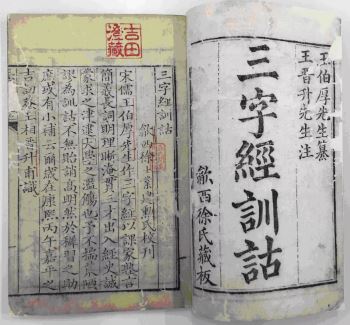 王伯厚先生纂
王晋升先生注
三字經訓詁
歙西徐氏藏板
三字經訓詁
宋儒王伯厚先生作三字經以課家塾言
簡義長詞明理晰淹貫三才出入經史誠
蒙求之津逮大學之濫觴也予不揣荒陋
謬為訓詁不無貽誚高明然於稺習之助
庶或有小補云爾歲在康熙丙午嘉平之
吉訒菴王相晋升甫識